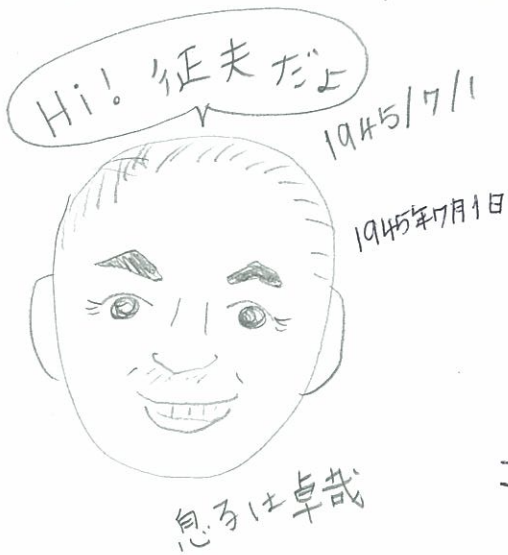 Hi! 征夫だよ
1945/7/1
1945年7月1日
息子は卓哉